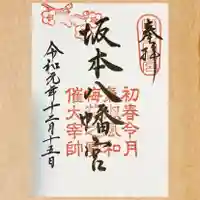 奉拝
初春令月
坂本八幡宮
催大宰帥
令和元年十二月十五日